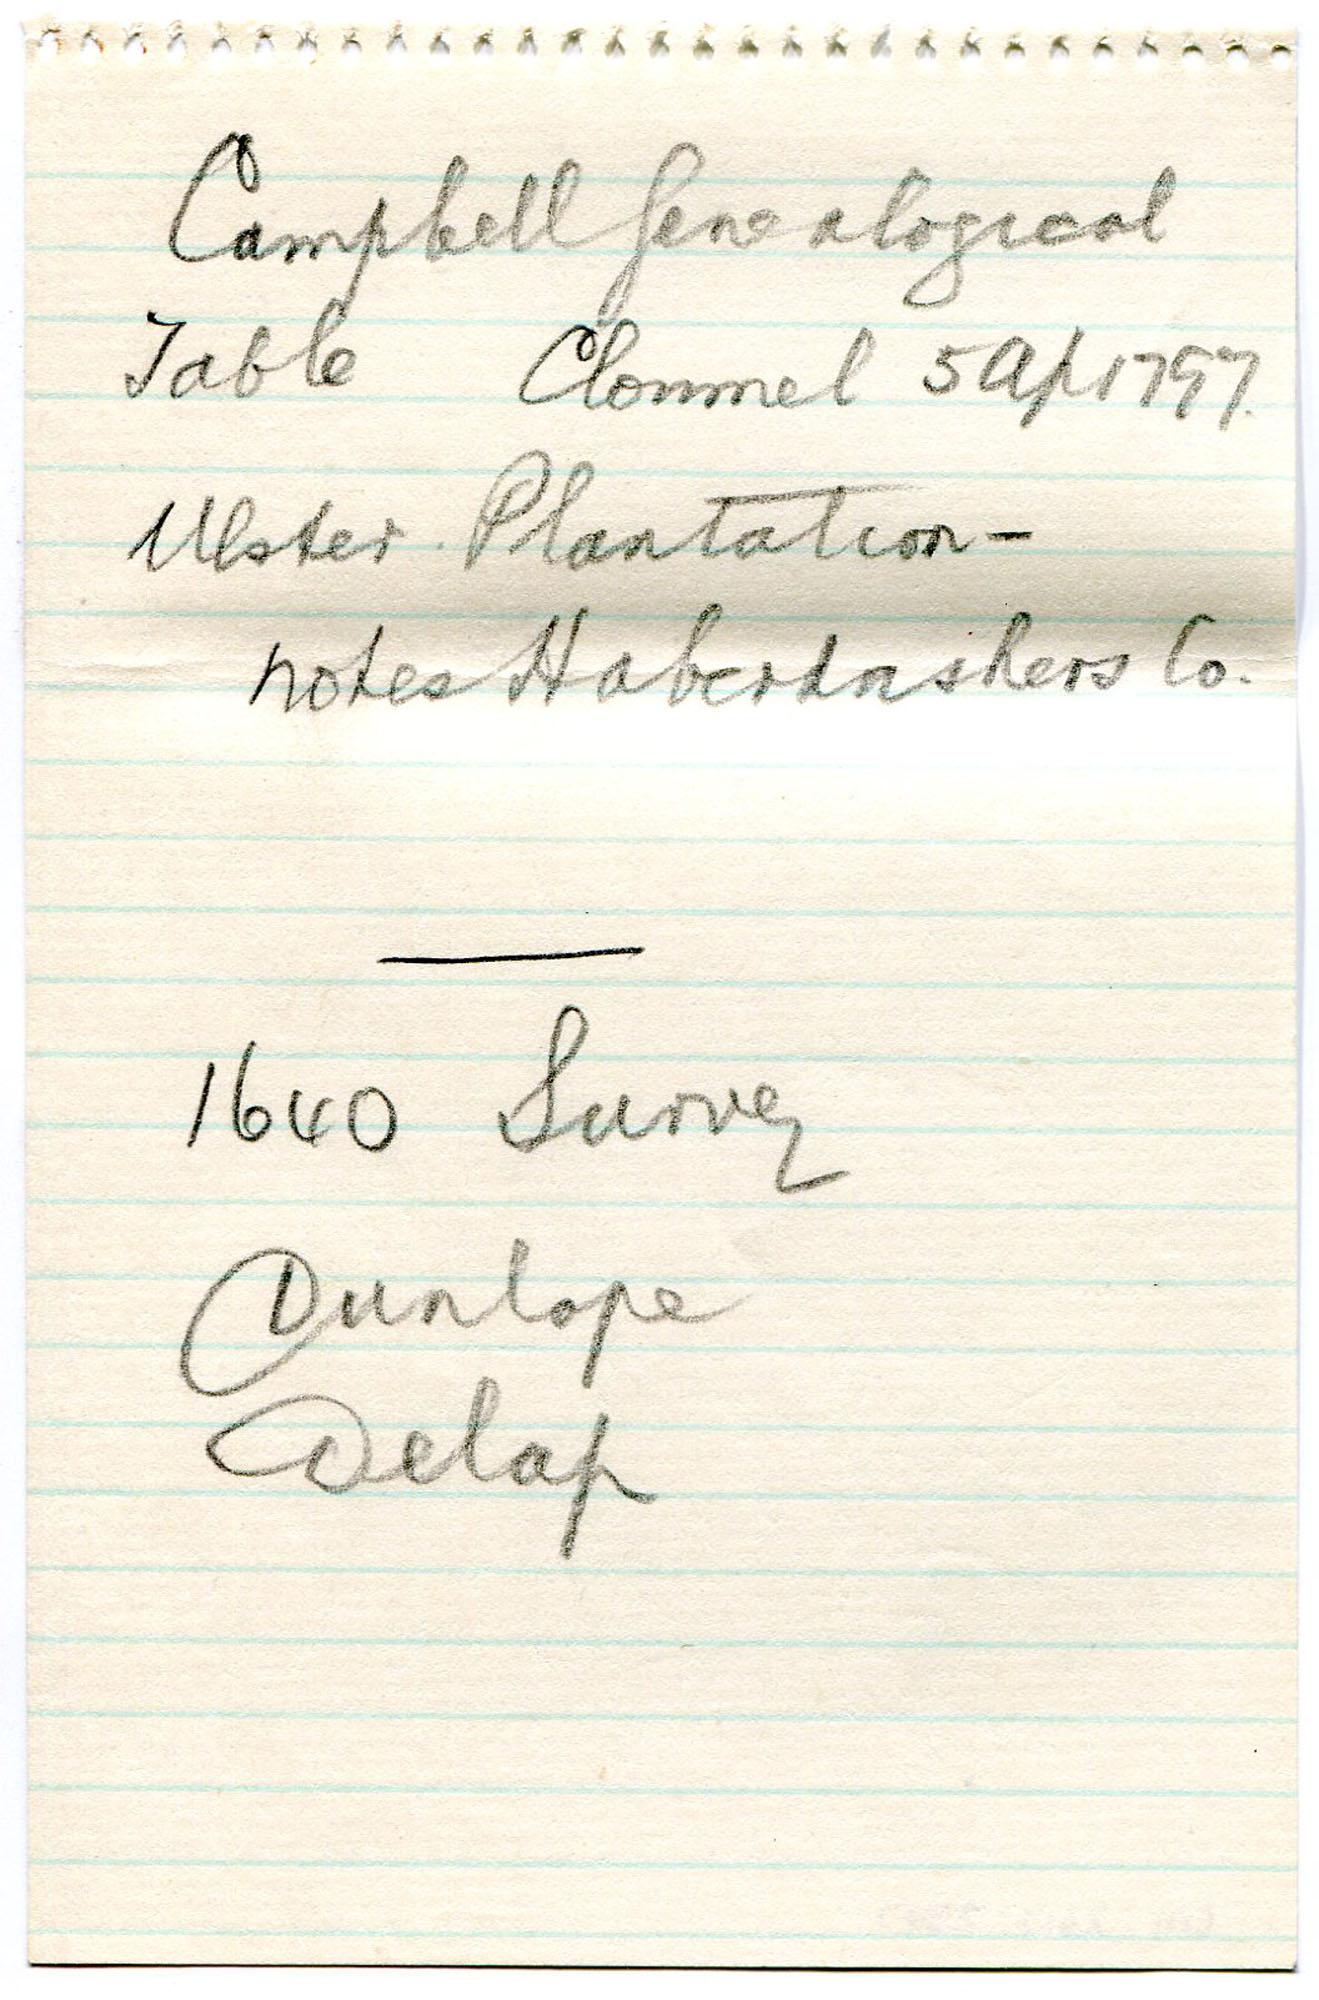 Campbell Genealogical
Table Clonmel 5 Ap 1797.
Ulster Plantation -
notes Haberdashers Co.
1640 Survey
Dunlope
Delap